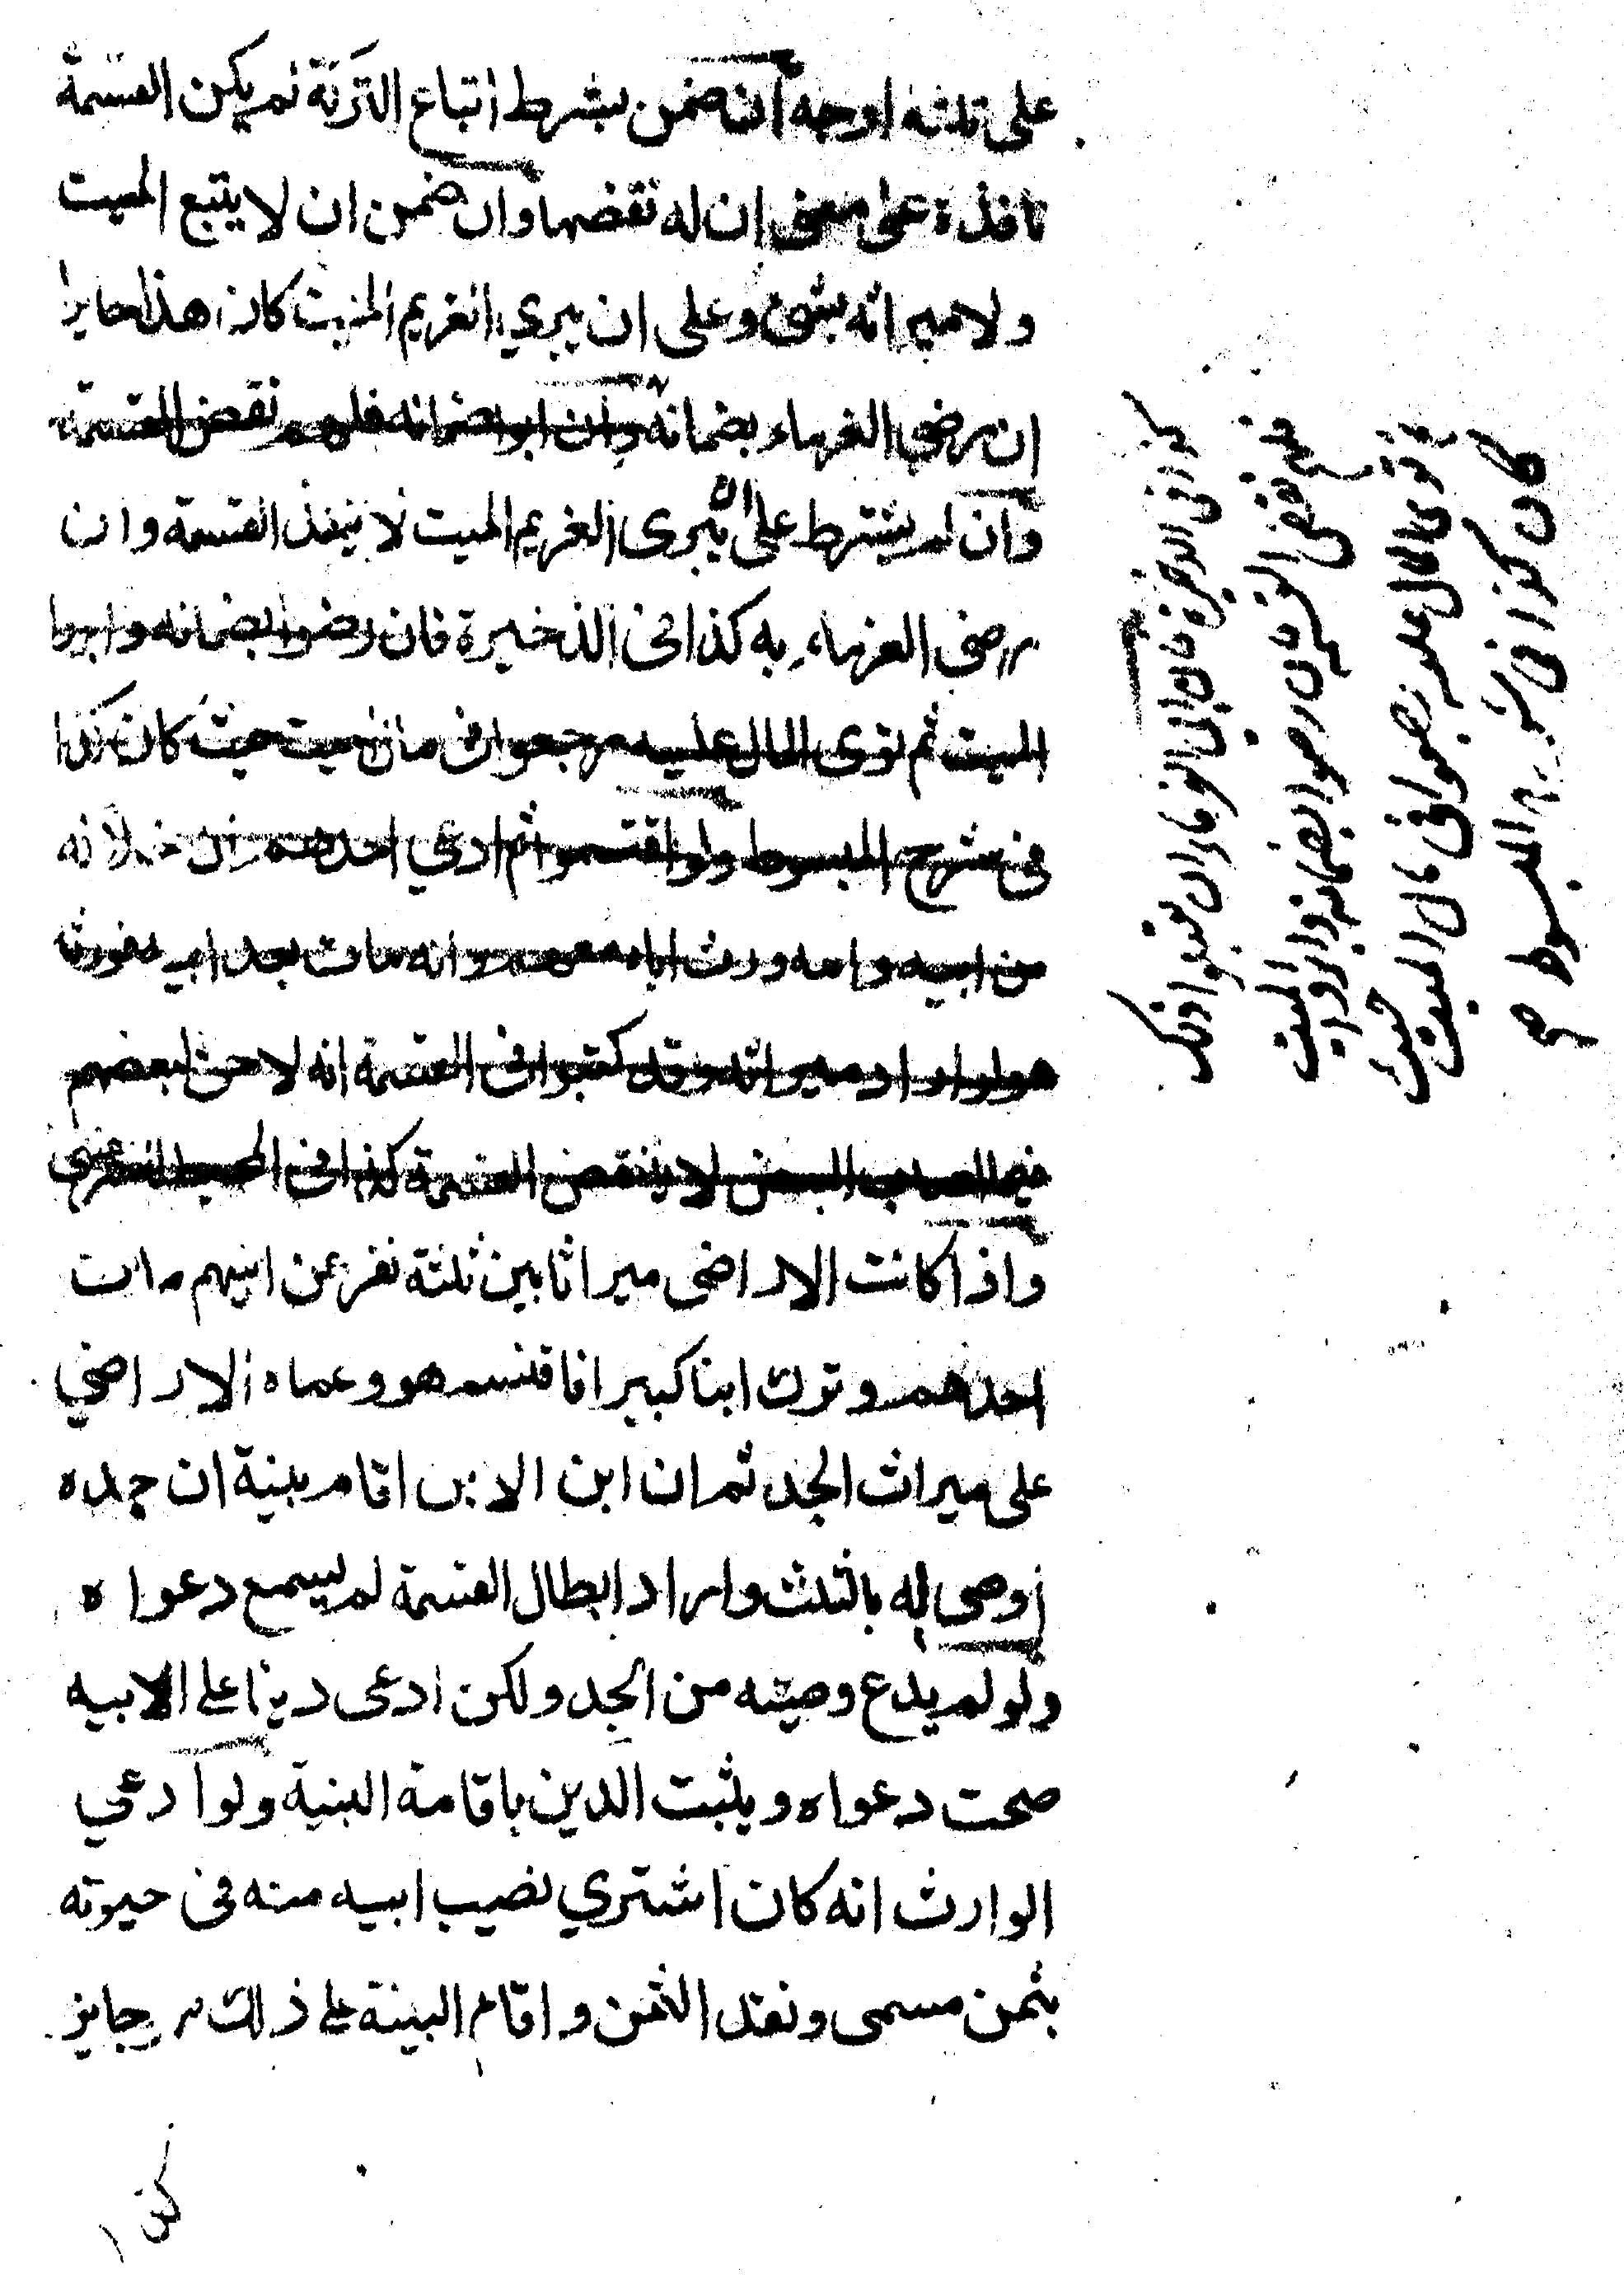 على ثلثة اوجه ان ضمن بشرط اتباع التركة لم يكن القسمة
نافذة على معنى ان له نقضها وان ضمن ان لا يتبع الميت
ولا ميراثه بشئ وعلى ان يبرئ الغريم الميت كان هذا جايزا
ان رضي الغرماء بضمانه وان ابوا ضمانه فلهم نقض القسمة
وان لم يشترط على ان يبرى الغريم الميت لا ينفذ القسمة وان
رضى الغرماء به كذا في الذخيرة فان رضوا بضمانه وابروا
الميت ثم توى المال عليه رجعوا في مال الميت حيث كان كذا
في شرح المبسوط ولو اقتسموا ثم ادعى احدهم ان
من ابيه وامه ورث اباه معهم وانه مات بعد ابيه فورثه
هو واراد ميراثه وقد كتبوا في القسمة انه لا حق لبعضهم
فيما اصاب البعض لا ينقض القسمة كذا في المحيط السرخسي
واذا كانت الاراضى ميراثا بين ثلثة نفر عن ابيهم مات
احدهم وترك ابنا كبيرا فاقتسم هو وعماه الاراضي
على ميراث الجد ثم ان ابن الابن اقام بينة ان جده
اوصى له بالثلث واراد ابطال القسمة لم يسمع دعواه
ولو لم يدع وصية من الجد ولكن ادعى دينا على الابيه
صحت دعواه ويثبت الدين باقامة البينة ولو ادعي
الوارث انه كان اشتري نصيب ابيه منه في حيوته
بثمن مسمى ونقد الثمن واقام البينة على ذلك جايز
كذا في الذخيرة
فان رضوا بضمانه وابروا الميت
ثم توى المال عليه رجعوا في مال الميت حيث
كان كذا في المبسوط